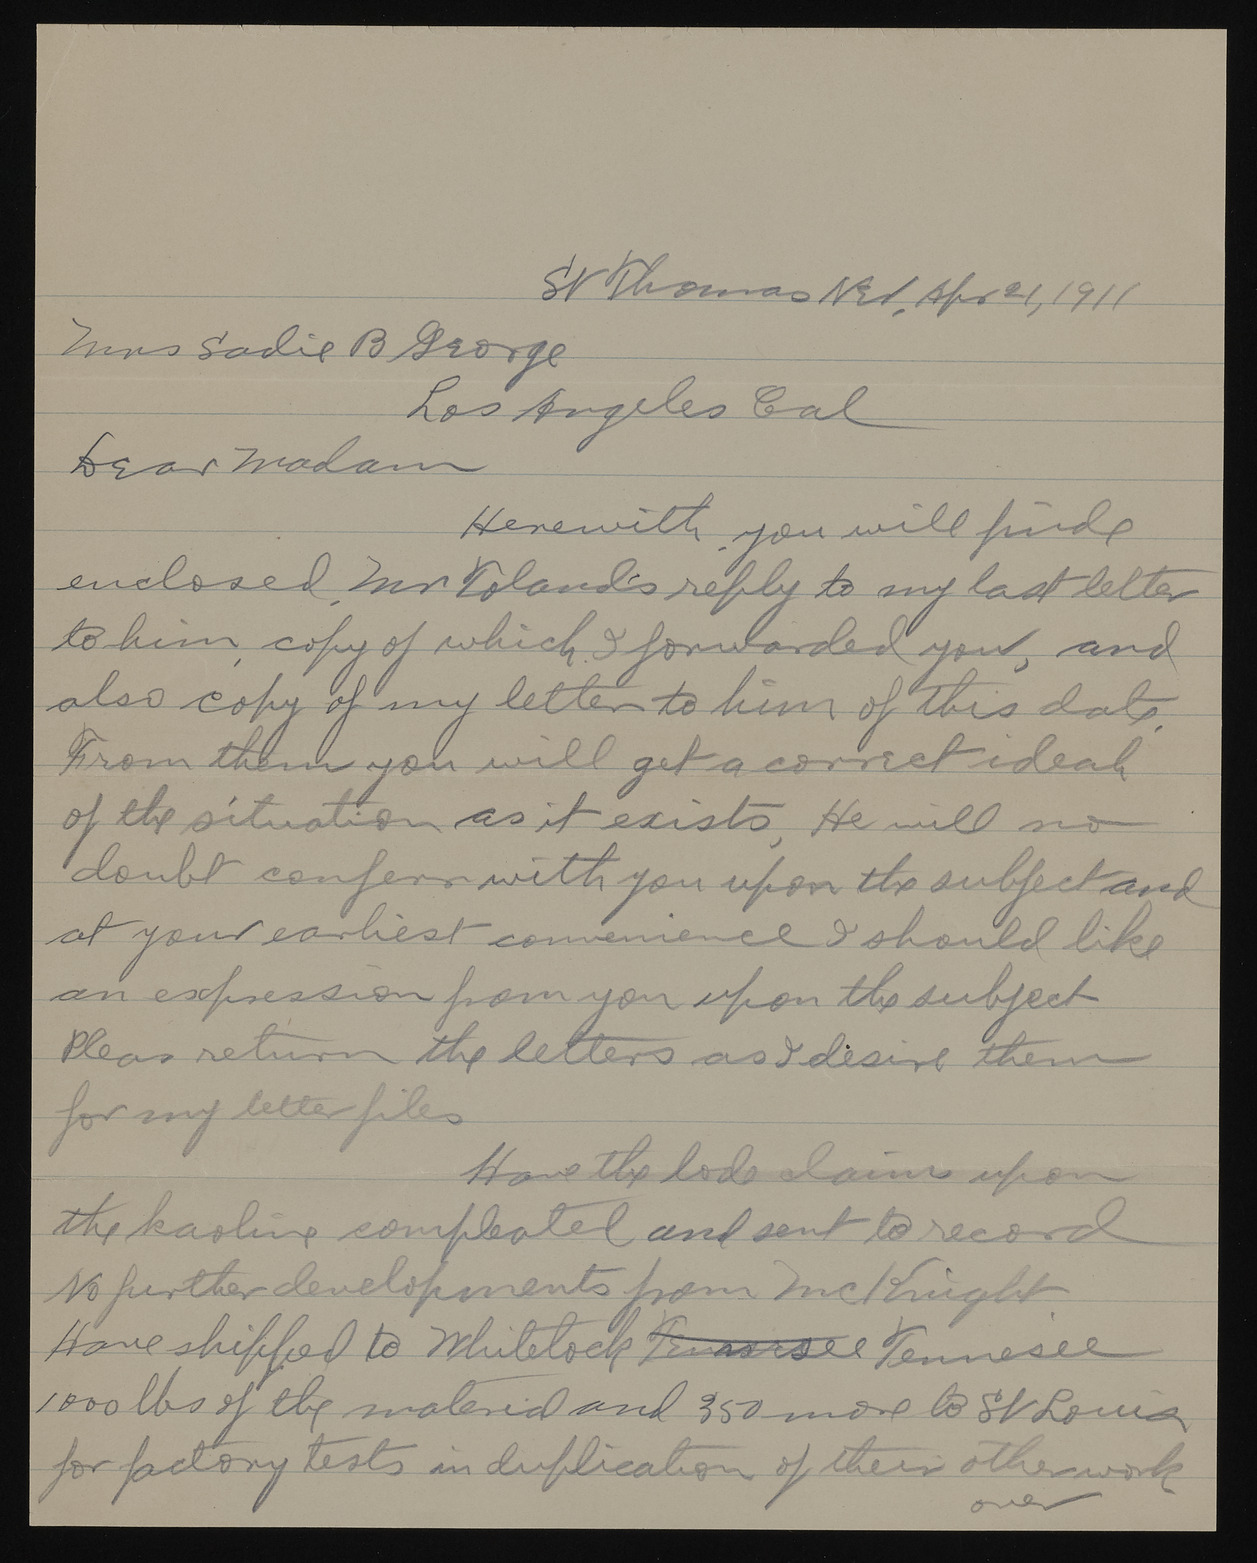 St Thomas Nev, Apr 21, 1911
Mrs Sadie B George
Los Angeles Cal
Dear Madam
Herewith you will finde
enclosed Mr Toland's reply to my last letter
to him, copy of which I forwarded you, and
also copy of my letter to him of this date.
From them you will get a correct ideah
of the situation as it exists, He will no
doubt conferr with you upon the subject and
at your earliest convenience I should like
an expression from you upon the subject
Pleas return the letters as I desire them
for my letter files
Have the lode claims upon
the kaoline compleated and sent to record
No further developments from McKnight
Have shipped to Whitelock Tennessee Tennesee
1000 lbs of the material and 350 more to St Louis
for factory tests in duplication of their other work
over